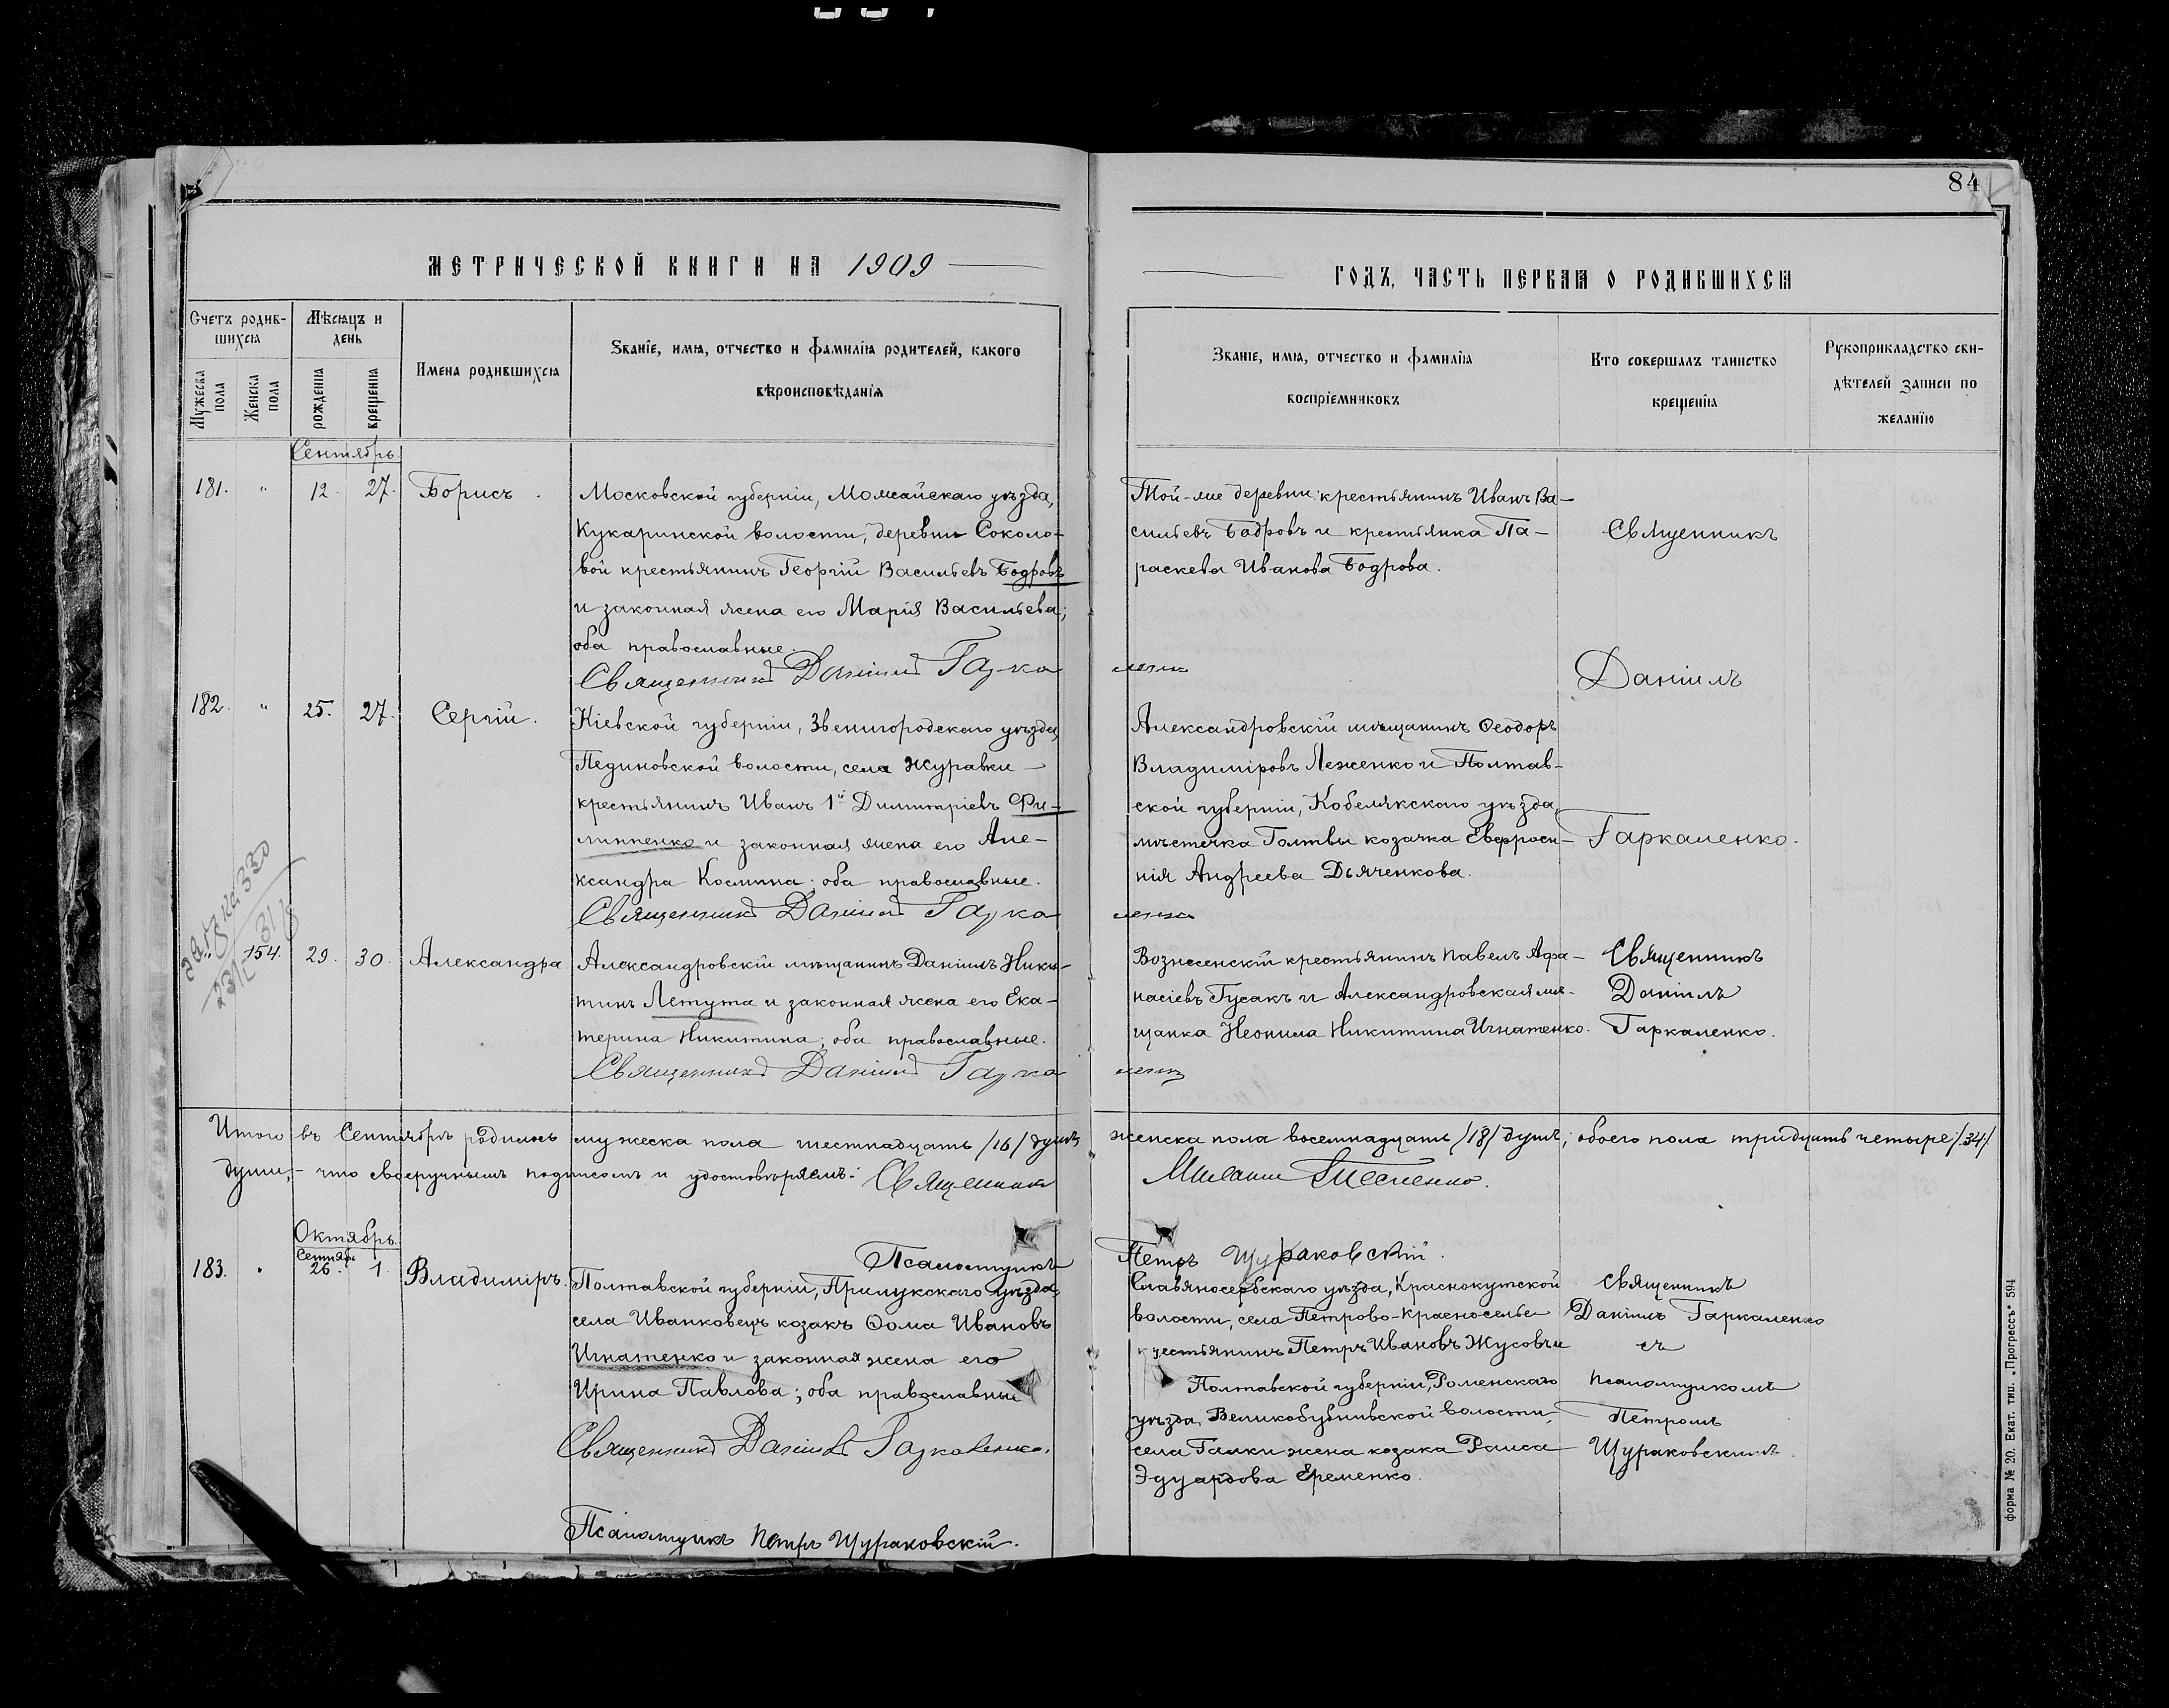 84
МЕТРИЧЕСКОЙ КНИГИ НА 1909
ГОДЪ, ЧАСТЬ ПЕРВАЯ О РОДИВШИХСЯ
Счетъ родив-
шихся
Мужеска пола
Женска пола
Мѣсяцъ и
день
рожденія
крещенія
Имена родившихся
Званіе, имя, отчество и фамилія родителей, какого
вѣроисповѣданія
Званіе, имя, отчество и фамилія
воспріемниковъ
Кто совершалъ таинство
крещенія
Рукоприкладство сви-
дѣтелей записи по
желанію
Сентябрь.
181. " 12. 27. Борисъ.
Московской губерніи, Можайскаго уѣзда,
Кукаринской волости, деревни Соколо-
вой крестьянинъ Георгій Васильевъ Бодровъ
и законная жена его Марія Васильева;
оба православные.
Священникъ Даніилъ Гарка
ленко
Той-же деревни крестьянинъ Иванъ Ва-
сильевъ Бодровъ и крестьянка Па-
раскева Иванова Бодрова.
Священникъ
Даніилъ
Гаркаленко.
182. " 25. 27. Сергій.
Кіевской губерніи, Звенигородскаго уѣзда,
Пединовской волости, села Журавки
крестьянинъ Иванъ 1й Димитріевъ Фи-
липпенко и законная жена его Але-
ксандра Космина; оба православные.
Священникъ Даніилъ Гарка
ленко
Александровскій мѣщанинъ Ѳеодоръ
Владиміровъ Леженко и Полтав-
ской губерніи, Кобелякскаго уѣзда,
мѣстечка Голтвы козачка Евфроси-
нія Андреева Дьяченкова.
154. 29. 30. Александра
Александровскій мѣщанинъ Даніилъ Ники-
тинъ Летута и законная жена его Ека-
терина Никитина; оба православные.
Священникъ Даніилъ Гарка
ленко
Вознесенскій крестьянинъ Павелъ Афа-
насіевъ Гусакъ и Александровская мѣ-
щанка Неонила Никитина Игнатенко.
Священникъ
Даніилъ
Гаркаленко.
Итого въ Сентябрѣ родилось мужеска пола шестнадцать /16/ душъ, женска пола восемнадцать /18/ душъ; обоего пола тридцать четыре /34/
души, - что своеручнымъ подписомъ и удостовѣряемъ: Священникъ
Псаломщикъ Петръ Щураковскій.
Октябрь.
Сентябрь
183. " 26. 1. Владиміръ.
Полтавской губерніи, Прилукскаго уѣзда,
села Иванковецъ козакъ Ѳома Ивановъ
Игнатенко и законная жена его
Ирина Павлова; оба православные
Священникъ Даніилъ Гаркаленко.
Псаломщикъ Петръ Щураковскій.
Славяносербскаго уѣзда, Краснокутской
волости, села Петрово-Красноселье
крестьянинъ Петръ Ивановъ Жусовъ и
Полтавской губерніи, Роменскаго
уѣзда, Великобубнивской волости,
села Галки жена козака Раиса
Эдуардова Еременко.
Священникъ
Даніилъ Гаркаленко
съ
псаломщикомъ
Петромъ
Щураковскимъ.
форма № 20. Екат. тип. „Прогрессъ" 594